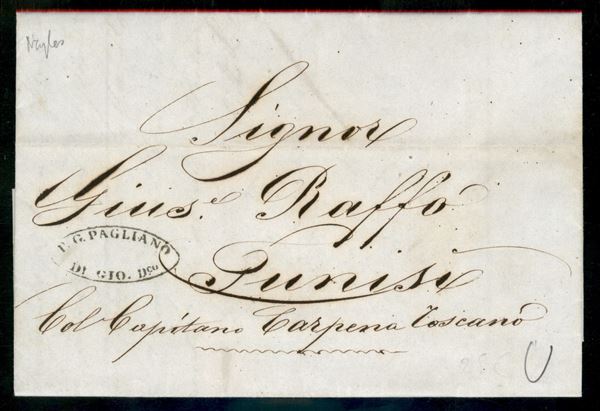 Naples
Signor
Gius.e Raffo
P. G. PAGLIANO
DI GIO. Dco
Tunisi
Col Capitano Carpena Toscano